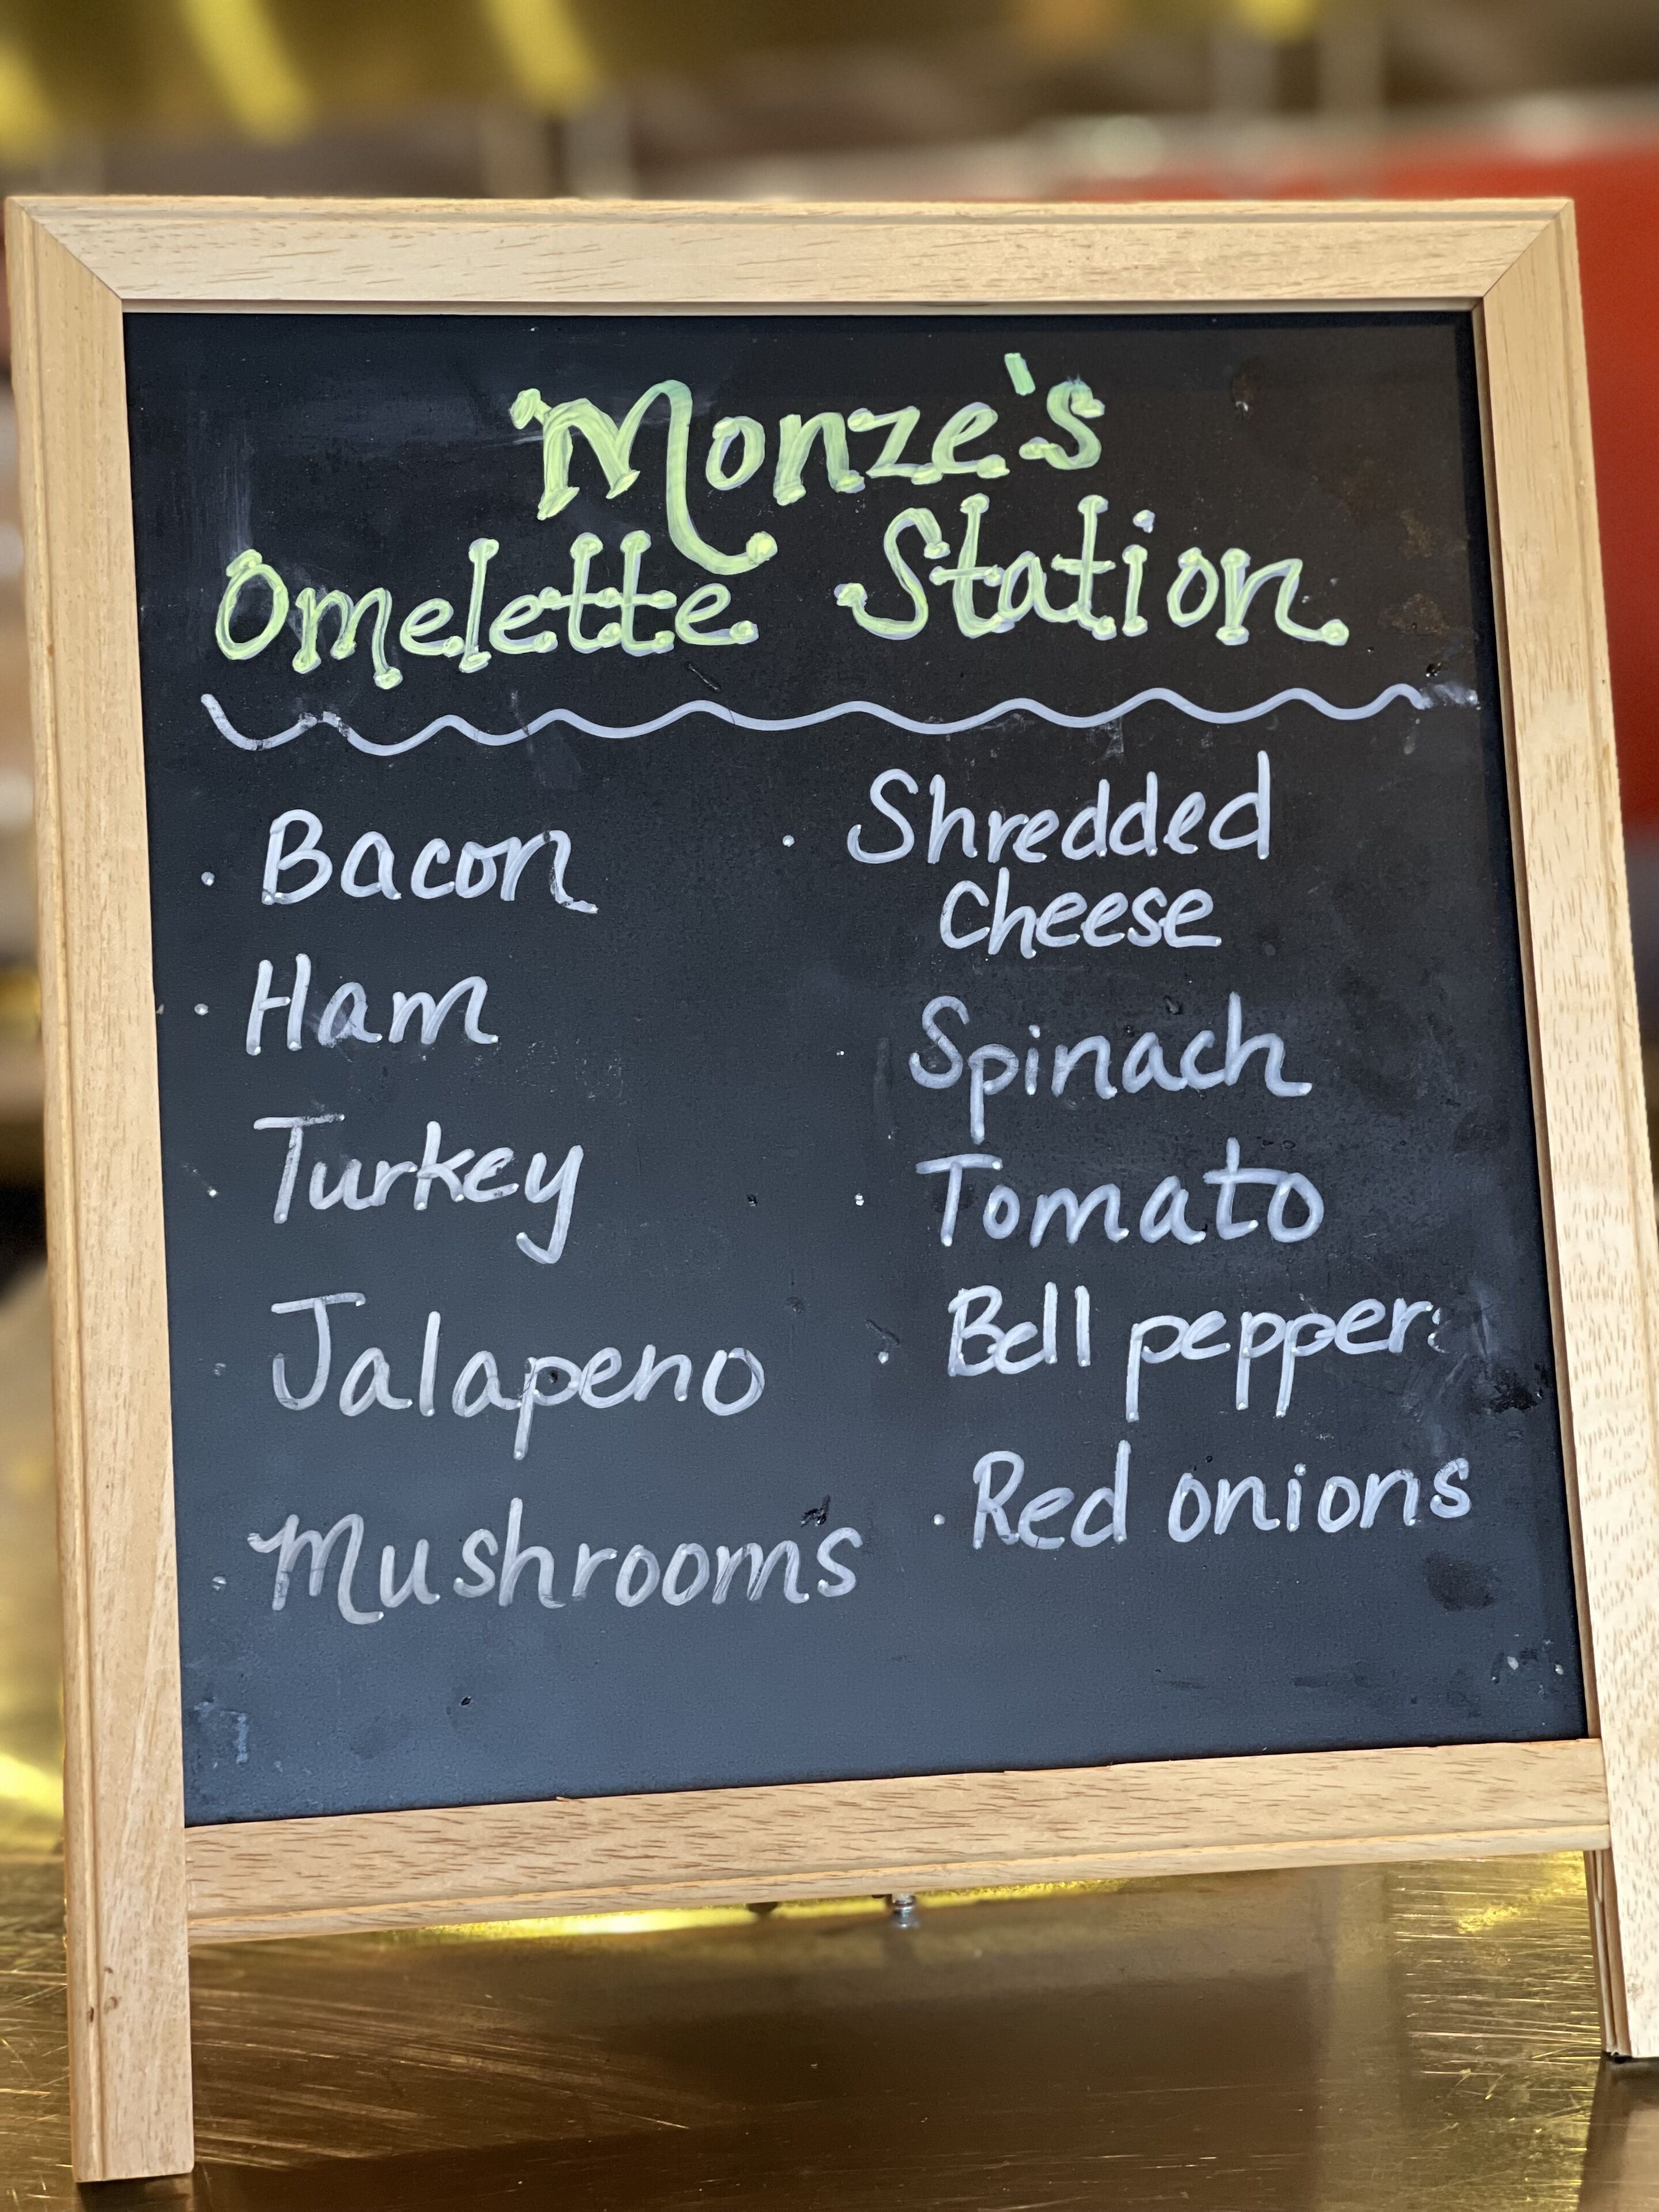 Monze's
Omelette Station
· Bacon
· Ham
· Turkey
· Jalapeno
· Mushrooms
· Shredded
Cheese
· Spinach
· Tomato
· Bell pepper
· Red onions